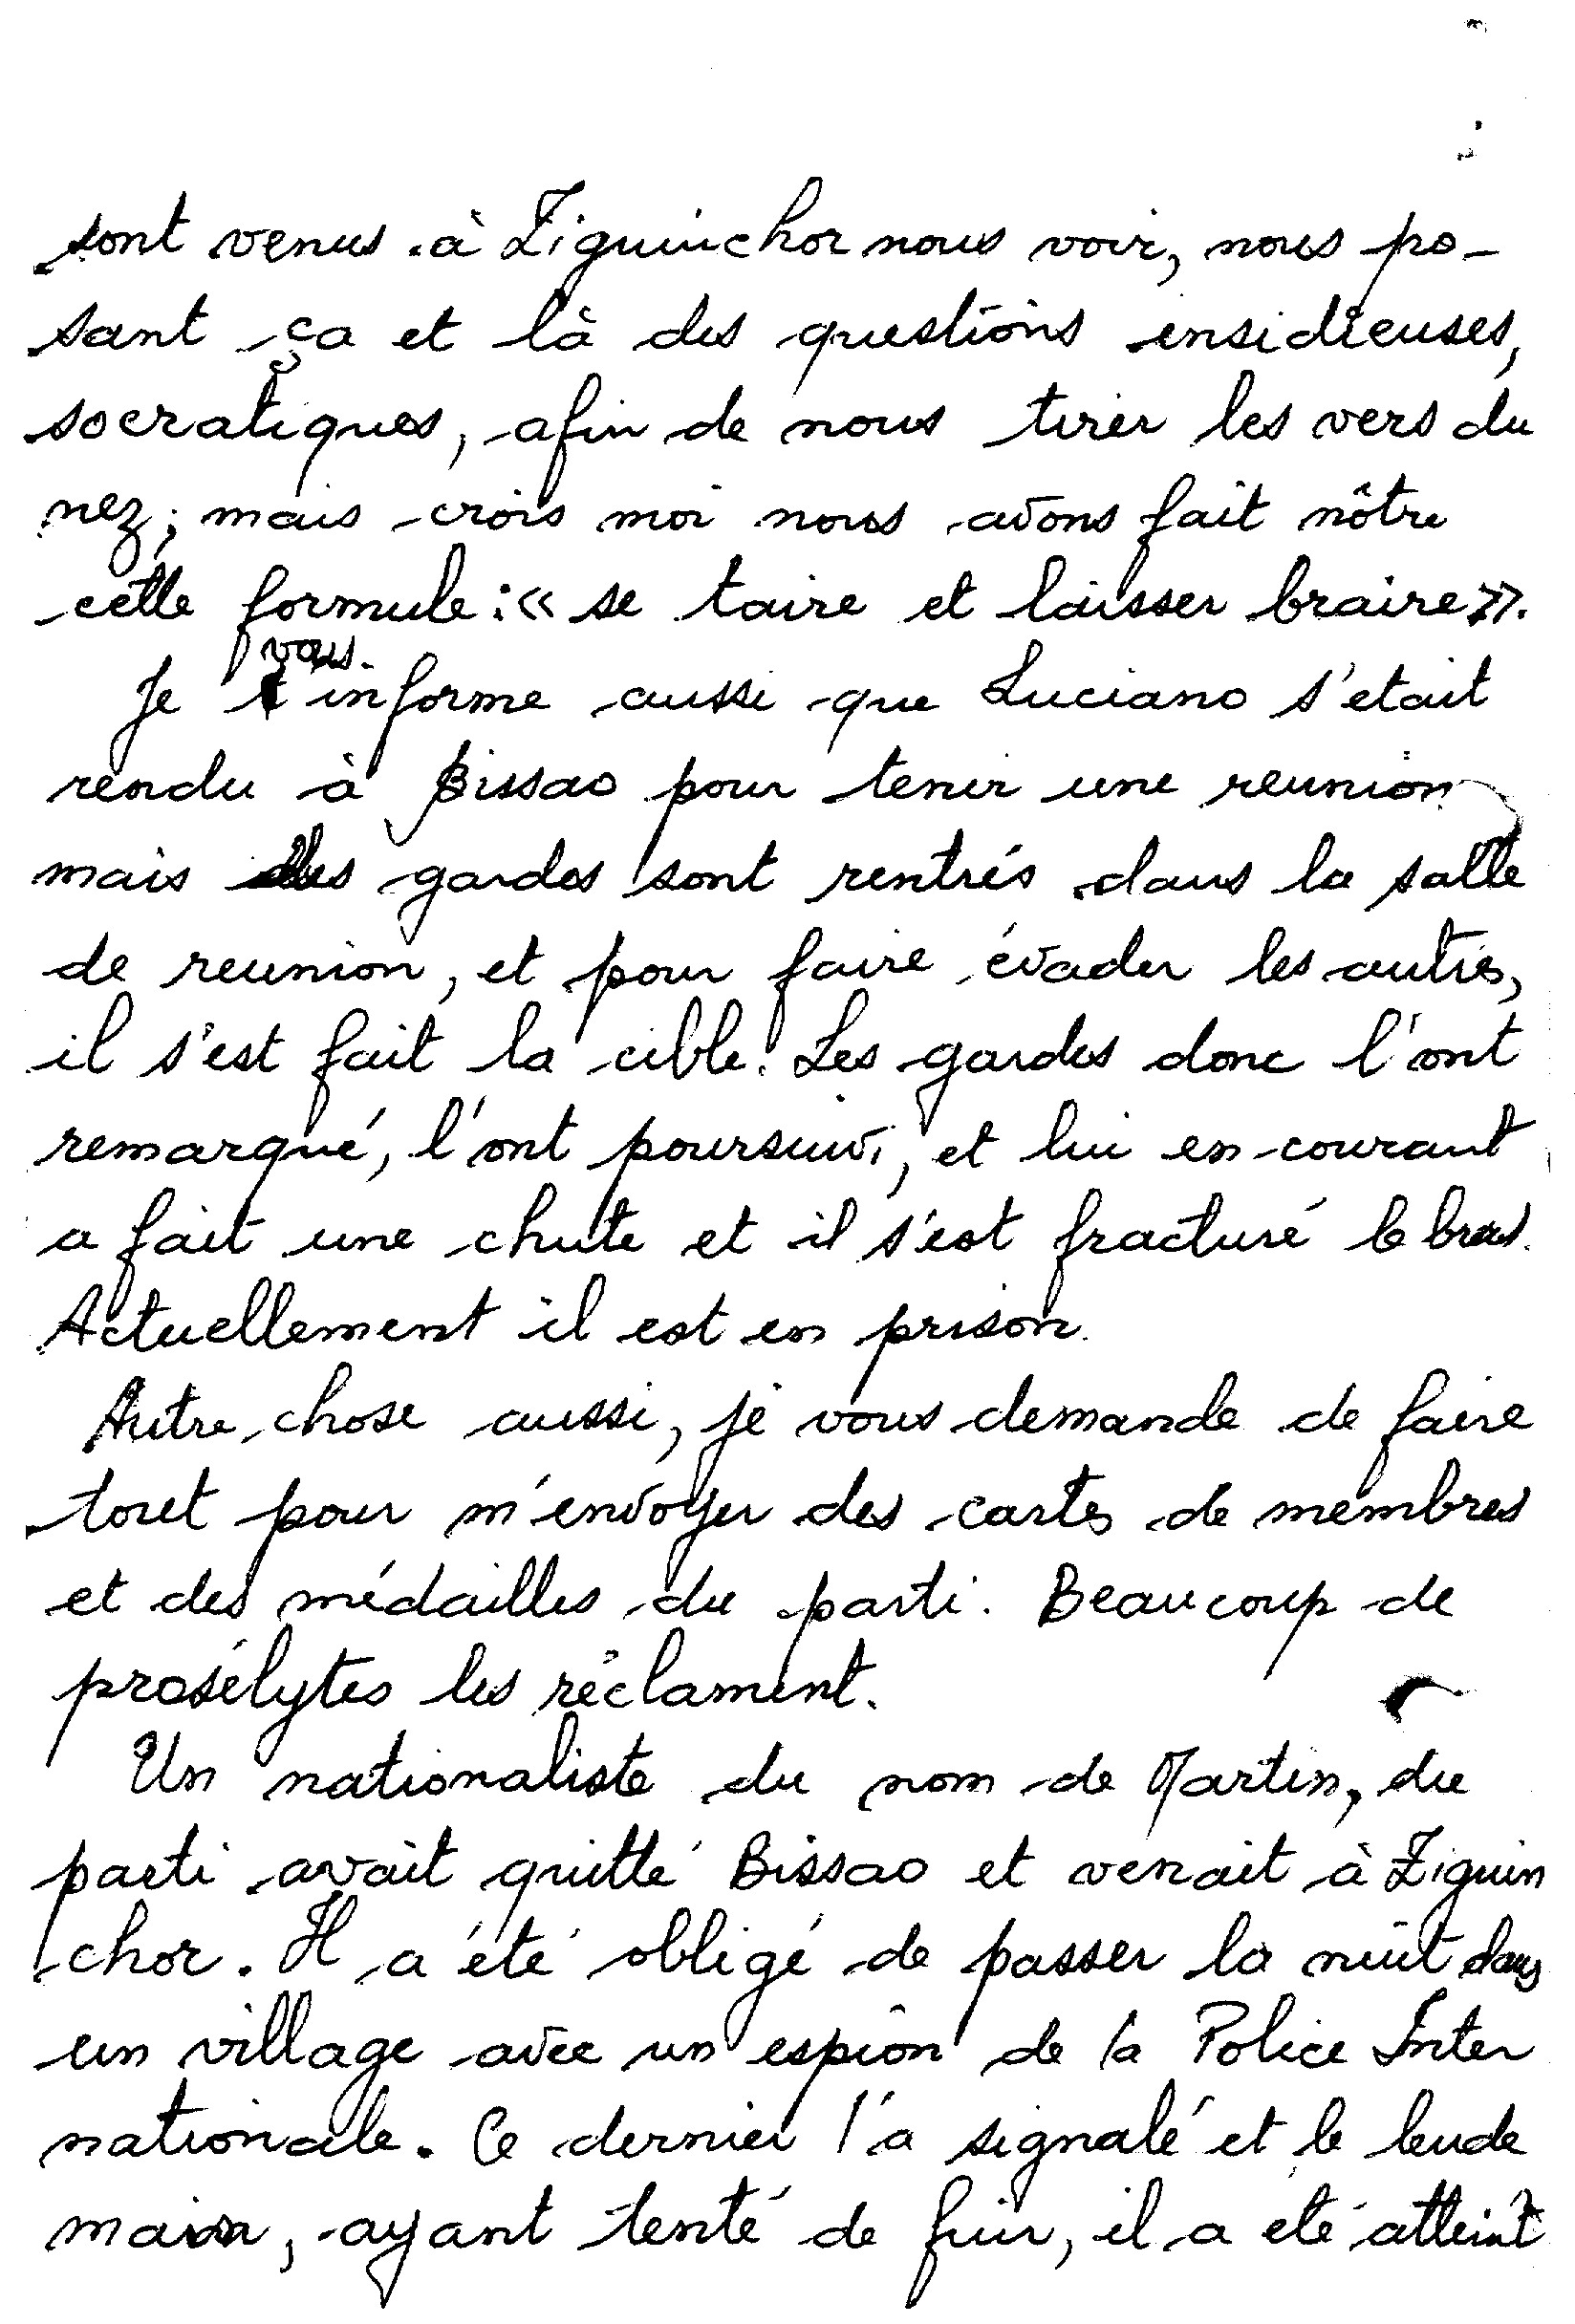 sont venus à Ziguinchor nous voir, nous po-
sant ça et là des questions ensidieuses,
socratiques, afin de nous tirer les vers du
nez; mais crois moi nous avons fait nôtre
cette formule : « se taire et laisser braire ».
vous
Je t'informe aussi que Luciano s'etait
rendu à Bissao pour tenir une reunion
mais des gardes sont rentrés dans la salle
de reunion, et pour faire évader les autres,
il s'est fait la cible. Les gardes donc l'ont
remarqué, l'ont poursuivi, et lui en courant
a fait une chute et il s'est fracturé le bras.
Actuellement il est en prison.
Autre chose aussi, je vous demande de faire
tout pour m'envoyer des cartes de membres
et des médailles du parti. Beaucoup de
prosélytes les réclament.
Un nationaliste du nom de Martin, du
parti avait quitté Bissao et venait à Ziguin
chor. Il a été obligé de passer la nuit dans
un village avec un espion de la Police Inter
nationale. Ce dernier l'a signalé et le lende
main, ayant tenté de fuir, il a été atteint